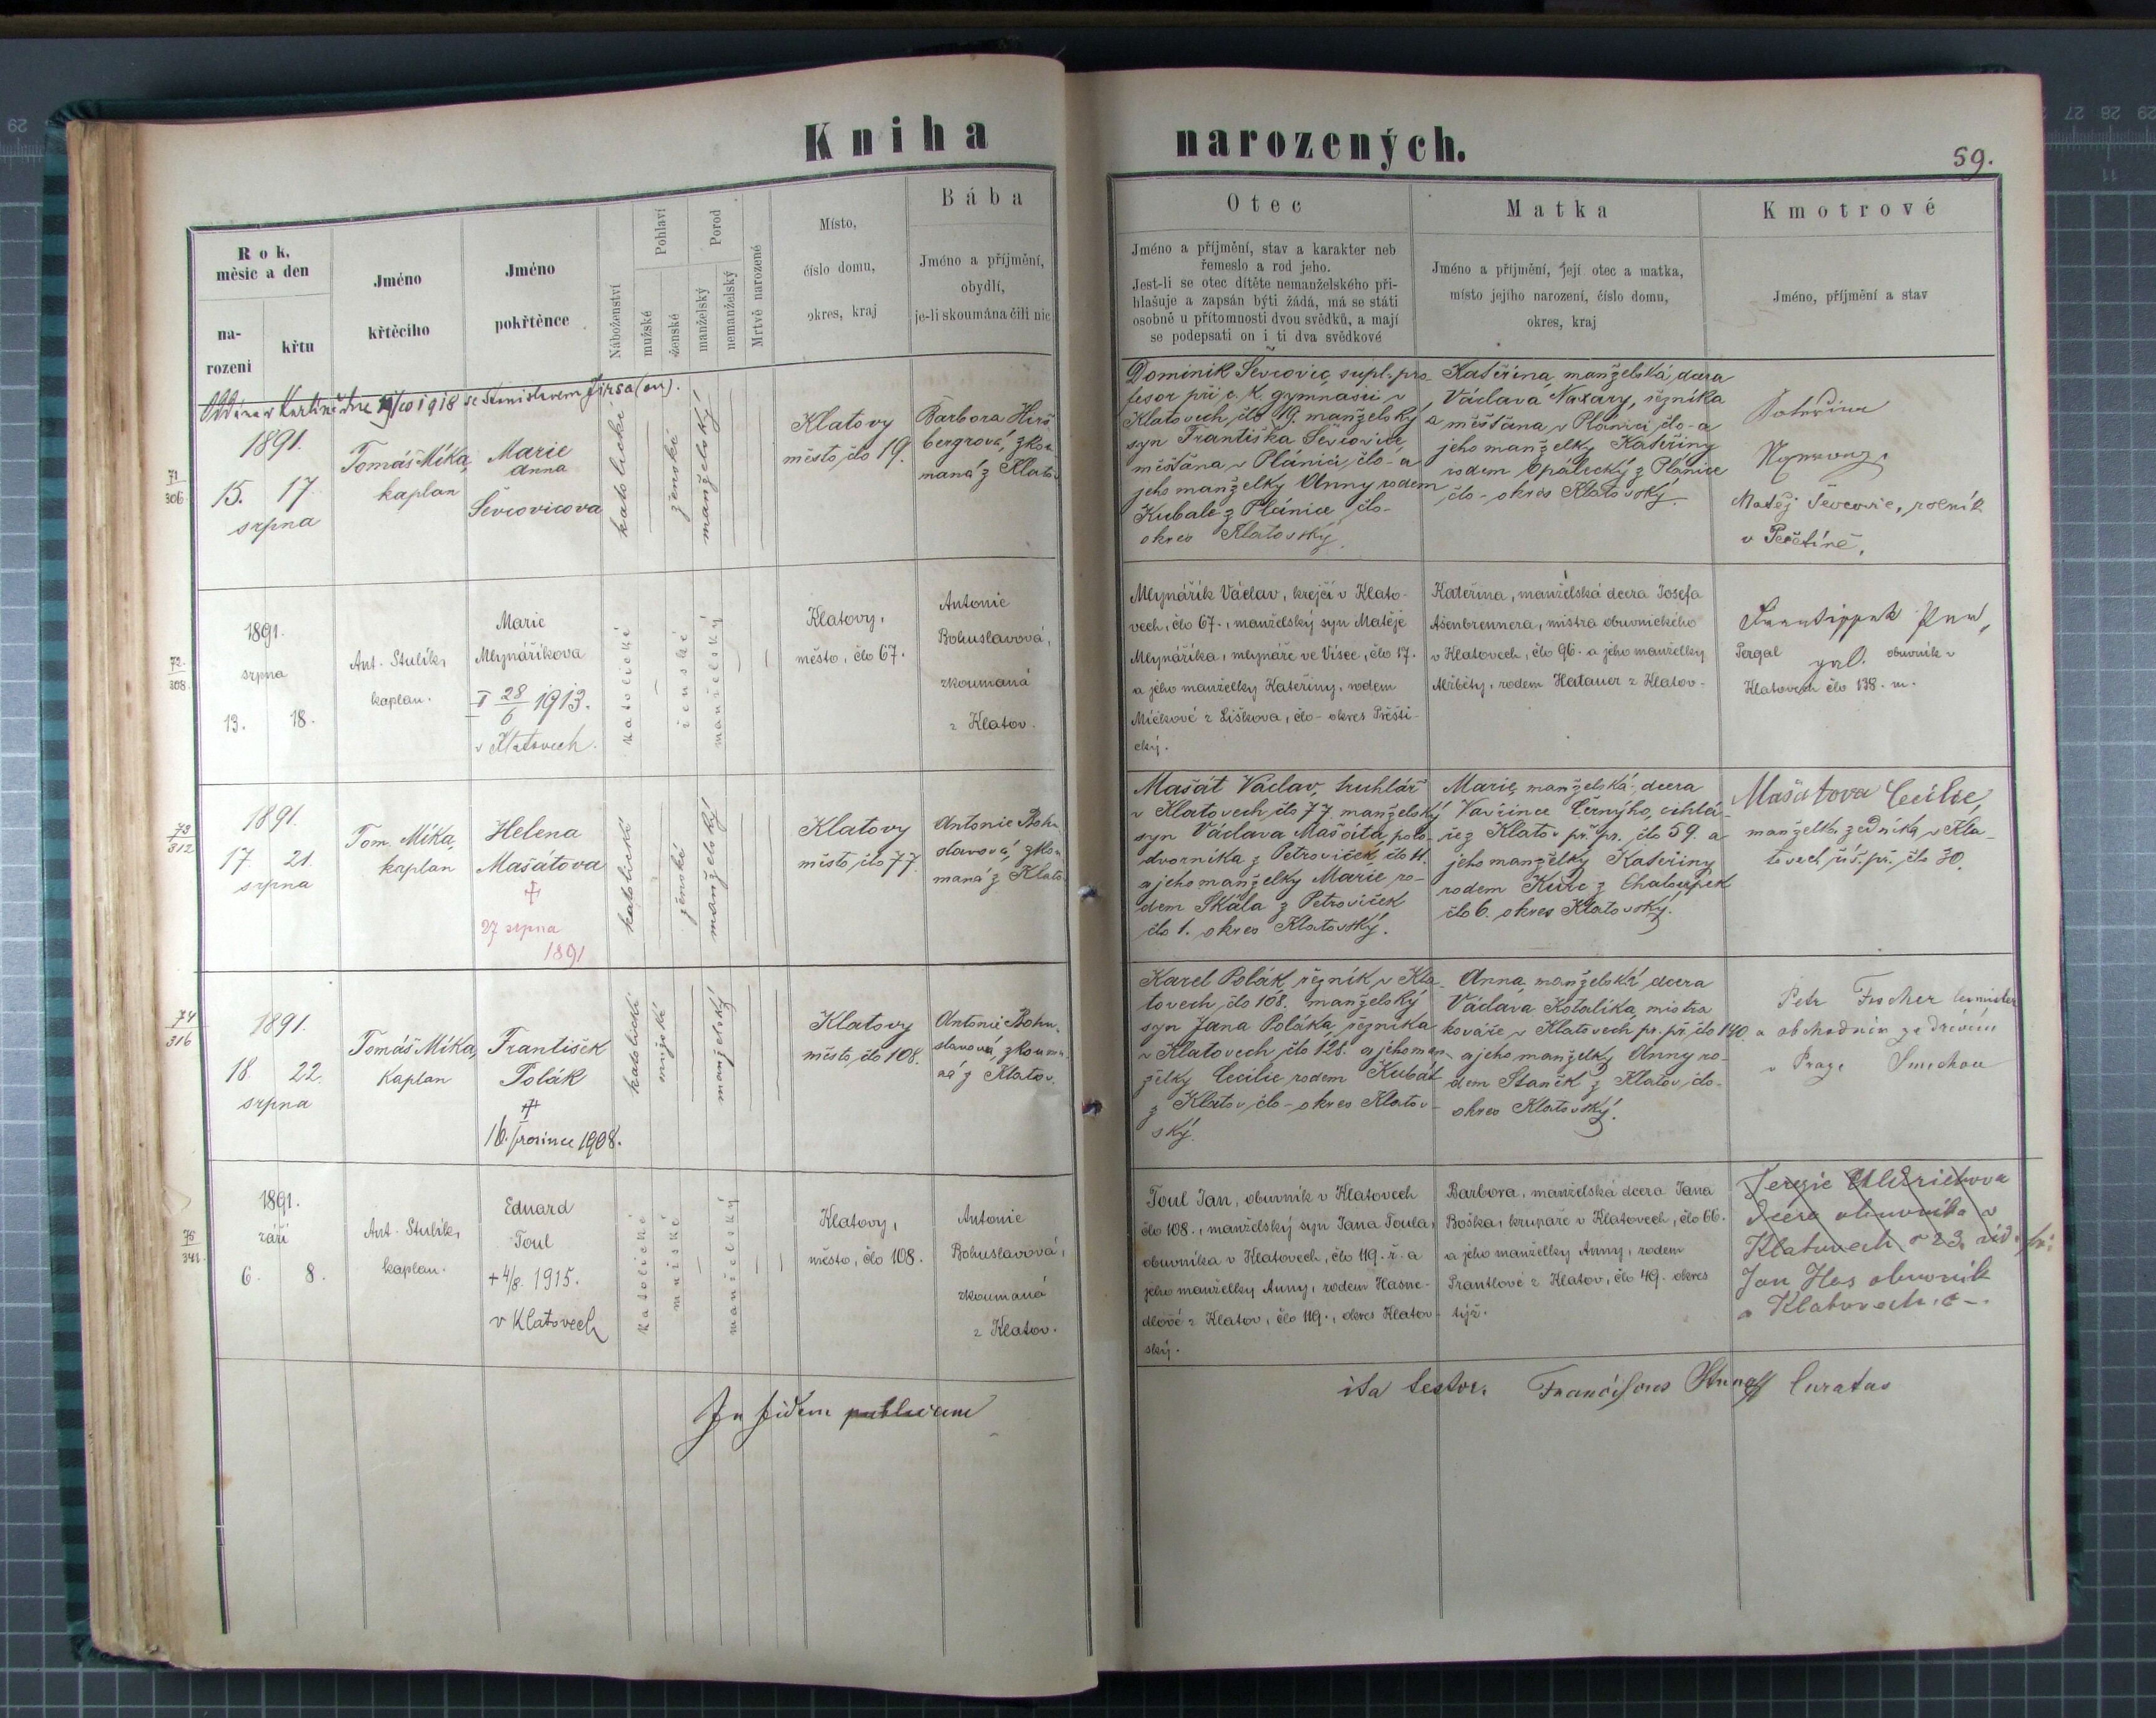 Kniha narozených.
59.
Rok, měsíc a den
narození
křtu
Jméno křtěcího
Jméno pokřtěnce
Náboženství
Pohlaví
mužské
ženské
Porod
manželský
nemanželský
Mrtvě narozené
Místo,
číslo domu,
okres, kraj
Bába
Jméno a příjmění,
obydlí,
je-li skoumána čili nic
Otec
Jméno a příjmění, stav a karakter neb
řemeslo a rod jeho.
Jest-li se otec dítěte nemanželského při-
hlašuje a zapsán býti žádá, má se státi
osobně u přítomnosti dvou svědků, a mají
se podepsati on i ti dva svědkové
Matka
Jméno a příjmění, její otec a matka,
místo jejího narození, číslo domu,
okres, kraj
Kmotrové
Jméno, příjmění a stav
1918 se Stanislavem Jirsa
71
306
1891.
15. 17.
srpna
Tomáš Míka,
kaplan
Marie
Anna
Ševcovicova
katolické
ženské
manželský
Klatovy
město, člo 19.
Barbora Hirš
bergrová, zkou
maná z Klatov
Dominik Ševcovic, supl. pro-
fesor při c. k. gymnasiu v
Klatovech, člo 119. manželský
syn Františka Ševcovice,
měšťana v Plánici, člo - a
jeho manželky Anny rodem
Kubale z Plánice člo -
okres Klatovský.
Kateřina, manželská dcera
Václava Naxary, řezníka
a měšťana v Plánici člo - a
jeho manželky Kateřiny
rodem Opálecký z Plánice
člo - okres Klatovský.
Kateřina
Matěj Ševcovic, rolník
v Pečetíně.
72.
308.
1891.
srpna
13. 18.
Ant. Stulík,
kaplan.
Marie
Mlynáříkova
I 28/6 1913.
v Klatovech.
katolické
ženské
manželský
Klatovy,
město, člo 67.
Antonie
Bohuslavová,
zkoumaná
z Klatov.
Mlynářík Václav, krejčí v Klato-
vech, člo 67., manželský syn Matěje
Mlynáříka, mlynáře ve Vísce, člo 17.
a jeho manželky Kateřiny, rodem
Míčkové z Liškova, člo - okres Přešti-
cký.
Kateřina, manželská dcera Josefa
Ašenbrennera, mistra obuvnického
v Klatovech, člo 96. a jeho manželky
Alžběty, rodem Hatauer z Klatov.
Pergal obuvník v
Klatovech člo 138. m.
73
312
1891.
17. 21.
srpna
Tom. Míka,
kaplan
Helena
Mašátova
27 srpna
1891
katolické
ženské
manželský
Klatovy
město, člo 77.
Antonie Bohu
slavová, zkou
maná z Klatov
Mašát Václav, truhlář
v Klatovech člo 77. manželský
syn Václava Mašáta, polo-
dvorníka z Petroviček, člo 11.
a jeho manželky Marie ro-
dem Skála z Petroviček
člo 1. okres Klatovský.
Marie, manželská dcera
Vavřince Černýho, cihlá-
ře z Klatov př. pr. člo 59. a
jeho manželky Kateřiny
rodem Kurc z Chaloupek
člo 6. okres Klatovský.
Mašatova Cecilie,
manželka zedníka v Kla-
tovech, člo 30.
74
316
1891.
18. 22.
srpna
Tomáš Míka,
kaplan
František
Polák
16. prosince 1908.
katolické
mužské
manželský
Klatovy
město, člo 108.
Antonie Bohu-
slavová, zkouma-
ná z Klatov.
Karel Polák, řezník v Kla-
tovech, člo 108. manželský
syn Jana Poláka, řezníka
v Klatovech člo 128. a jeho man-
želky Cecilie rodem Kubát
z Klatov člo - okres Klatov-
ský.
Anna, manželská dcera
Václava Kotalíka, mistra
kováře v Klatovech pr. př. člo 140
a jeho manželky Anny ro-
dem Staněk z Klatov, člo -
okres Klatovský.
Petr Fischer
a obchodník
v Praze Smíchov
75
341.
1891.
září
6. 8.
Ant. Stulík,
kaplan.
Eduard
Toul
+ 4/8. 1915.
v Klatovech
katolické
mužské
manželský
Klatovy,
město, člo 108.
Antonie
Bohuslavová,
zkoumaná
z Klatov.
Toul Jan, obuvník v Klatovech
člo 108., manželský syn Jana Toula,
obuvníka v Klatovech, člo 119. ř. a
jeho manželky Anny, rodem Hasne-
dlové z Klatov, člo 119., okres Klatov-
ský.
Barbora, manželská dcera Jana
Boška, krupaře v Klatovech, člo 66.
a jeho manželky Anny, rodem
Prantlové z Klatov, člo 49. okres
týž.
Terezie Uldrichova
dcera obuvníka v
Klatovech č 23.
Jan Hos obuvník
v Klatovech, č -.
In fidem publicam
ita testor. Curatus